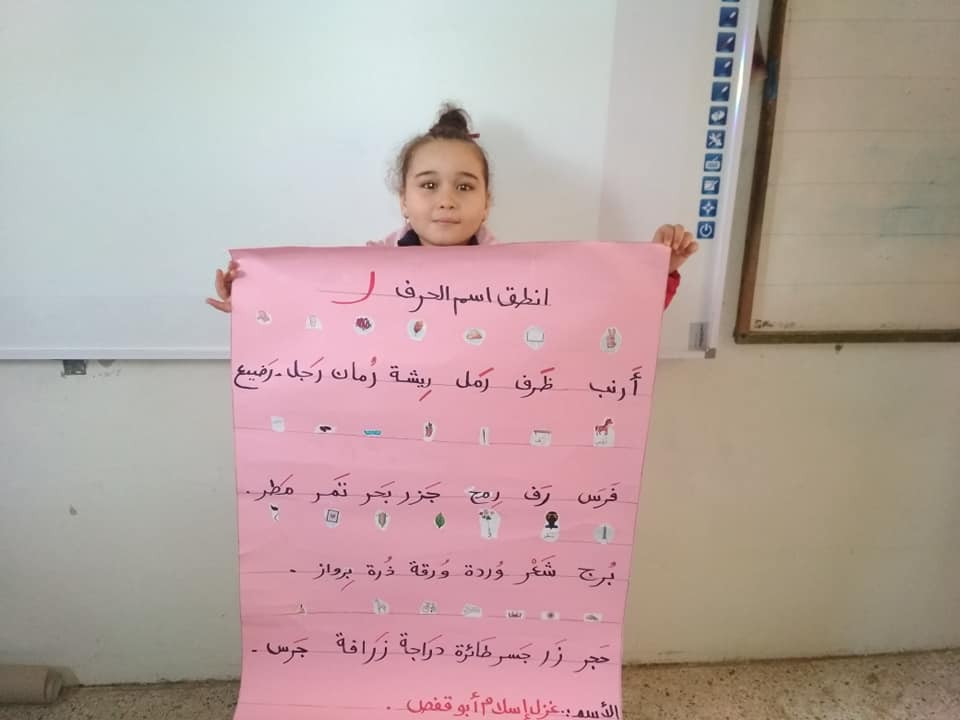 انطق اسم الحرف ر
أَرنب ظَرف رَمل رِيشة رُمان رَجل - رَضيع
فَرَس رَف رِمح جَزر بَحر تَمر مَطر .
بُرج شَعْر وَردة وَرقة ذُرة بِرواز .
حَجر زَر جَسر طَائرة دراجة زَرافة جَرس .
الأسم :. غزل إسلام أبو قفص .